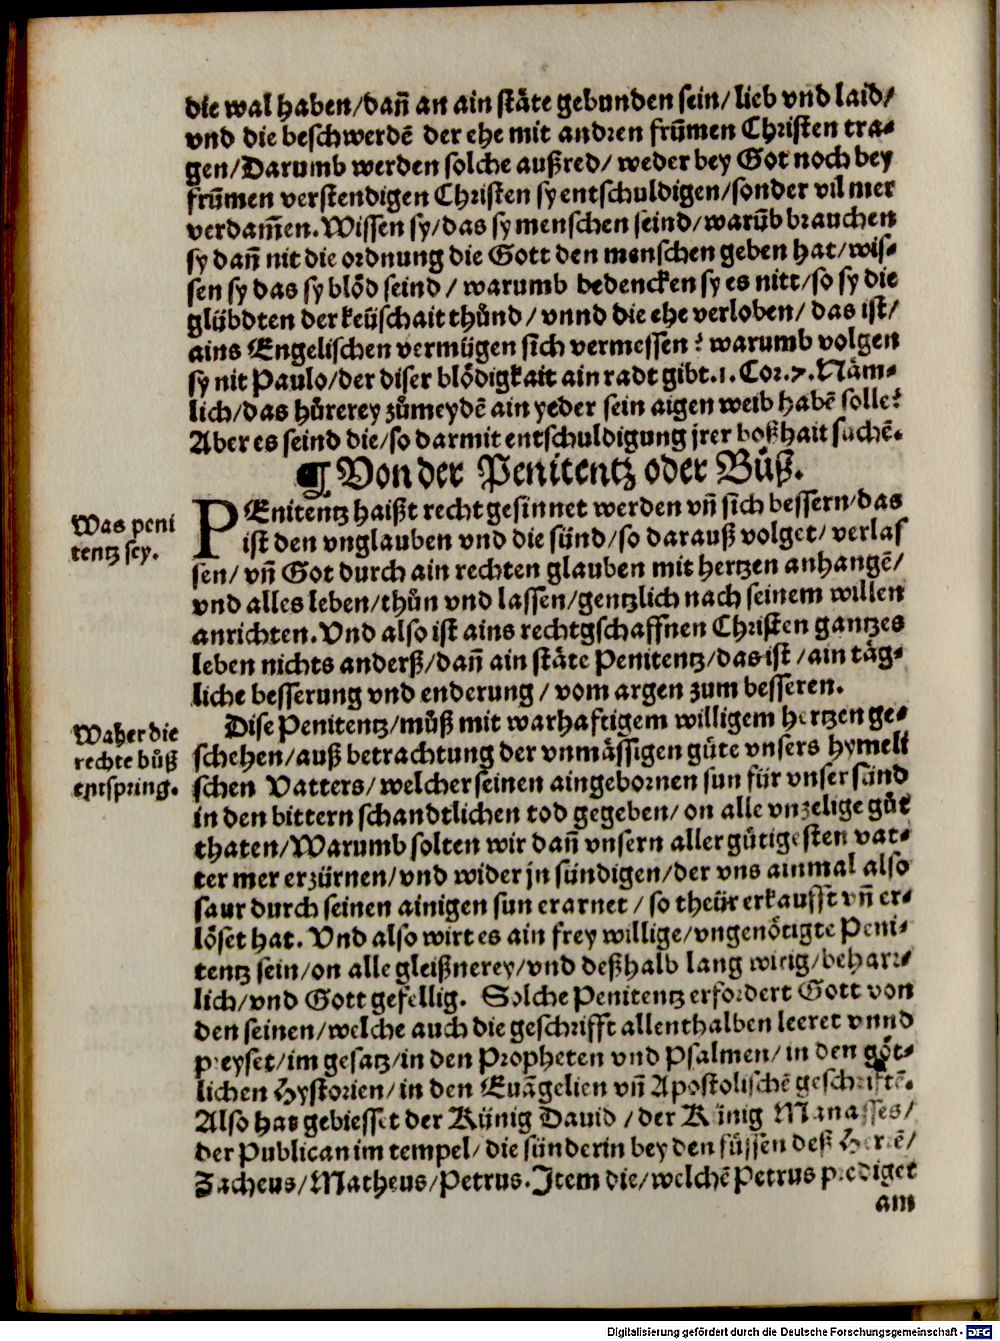 die wal haben/dañ an ain stäte gebunden sein/ lieb vnd laid/
vnd die beschwerdē der ehe mit andren frūmen Christen tra⸗
gen/Darumb werden solche außred/ weder bey Got noch bey
frūmen verstendigen Christen sy entschuldigen/sonder vil mer
verdam̄en. Wissen sy/das sy menschen seind/warūb brauchen
sy dañ nit die ordnung die Gott den menschen geben hat/wis⸗
sen sy das sy blöd seind / warumb bedencken sy es nitt/so sy die
glübdten der keüschait thůnd / vnnd die ehe verloben/ das ist/
ains Engelischen vermügen sich vermessen? warumb volgen
sy nit Paulo/der diser blödigkait ain radt gibt.1. Cor.7. Näm⸗
lich/das hůrerey zůmeydē ain yeder sein aigen weib habē solle?
Aber es seind die/so darmit entschuldigung jrer boßhait suchē.
¶ Von der Penitentz oder Bůß.
Was peni
tentz sey.
PEnitentz haißt recht gesinnet werden vñ sich bessern/das
ist den vnglauben vnd die sünd/so darauß volget/ verlas
sen/ vñ Got durch ain rechten glauben mit hertzen anhangē/
vnd alles leben/thůn vnd lassen/gentzlich nach seinem willen
anrichten. Vnd also ist ains rechtgschaffnen Christen gantzes
leben nichts anderß/dañ ain stäte Penitentz/das ist /ain täg⸗
liche besserung vnd enderung / vom argen zum besseren.
Waher die
rechte bůß
entspring.
Dise Penitentz/můß mit warhafftigem willigem hertzen ge⸗
schehen/auß betrachtung der vnmässigen güte vnsers hymeli
schen Vatters/welcher seinen aingebornen sun für vnser sünd
in den bittern schandtlichen tod gegeben/ on alle vnzelige gůt
thaten/Warumb solten wir dañ vnsern aller gütigesten vat⸗
ter mer erzürnen/vnd wider jn sündigen/der vns ainmal also
saur durch seinen ainigen sun erarnet / so theür erkaufft vñ er⸗
löset hat. Vnd also wirt es ain frey willige/vngenötigte Peni⸗
tentz sein/on alle gleißnerey/vnd deßhalb lang wirig/beharr⸗
lich/vnd Gott gefellig. Solche Penitentz erfordert Gott von
den seinen/welche auch die geschrifft allenthalben leeret vnnd
preyset/im gesatz/in den Propheten vnd Psalmen/ in den göt⸗
lichen Hystorien/in den Euāgelien vñ Apostolischē geschrifftē.
Also hat gebiesset der Künig Dauid /der Künig Manasses/
der Publican im tempel/ die sünderin bey den füssen deß Herrē/
Zacheus/Matheus/Petrus. Item die/welchē Petrus prediget
am
Digitalisierung gefördert durch die Deutsche Forschungsgemeinschaft - DFG